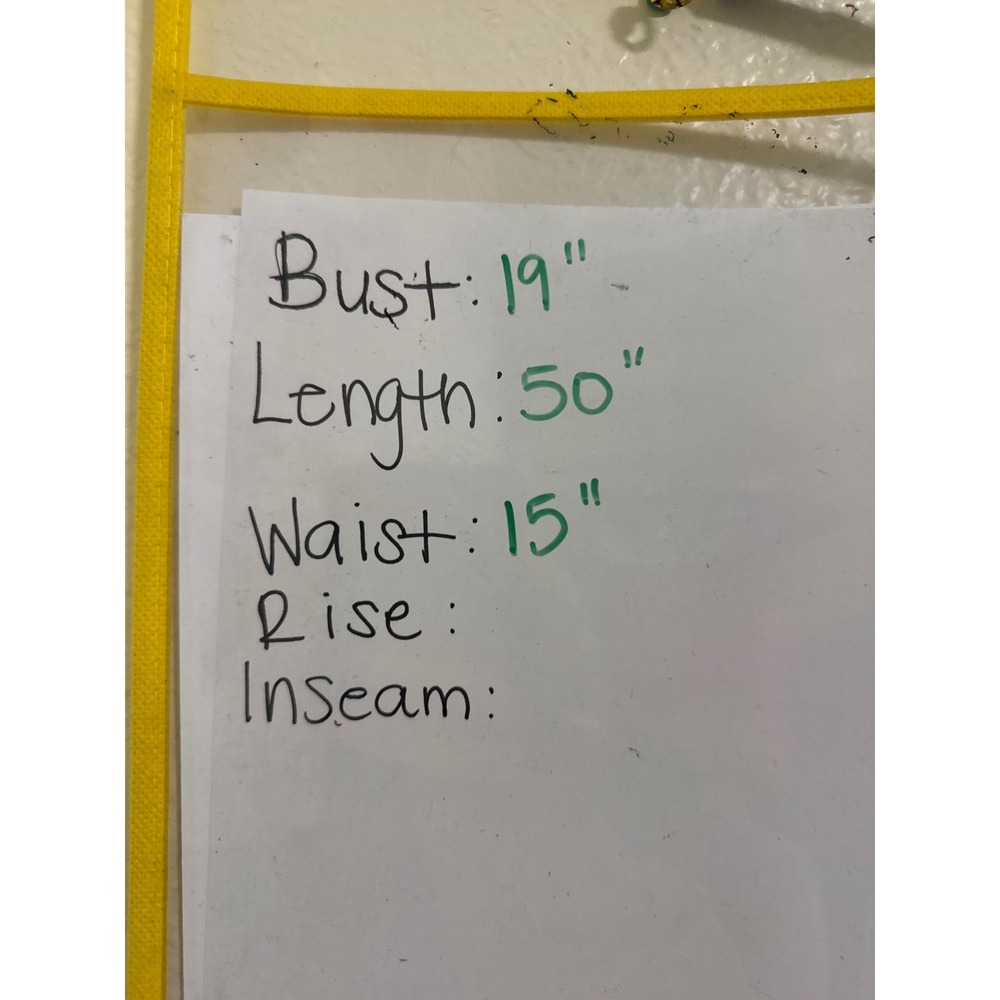 Bust: 19"
Length: 50"
Waist: 15"
Rise:
Inseam: